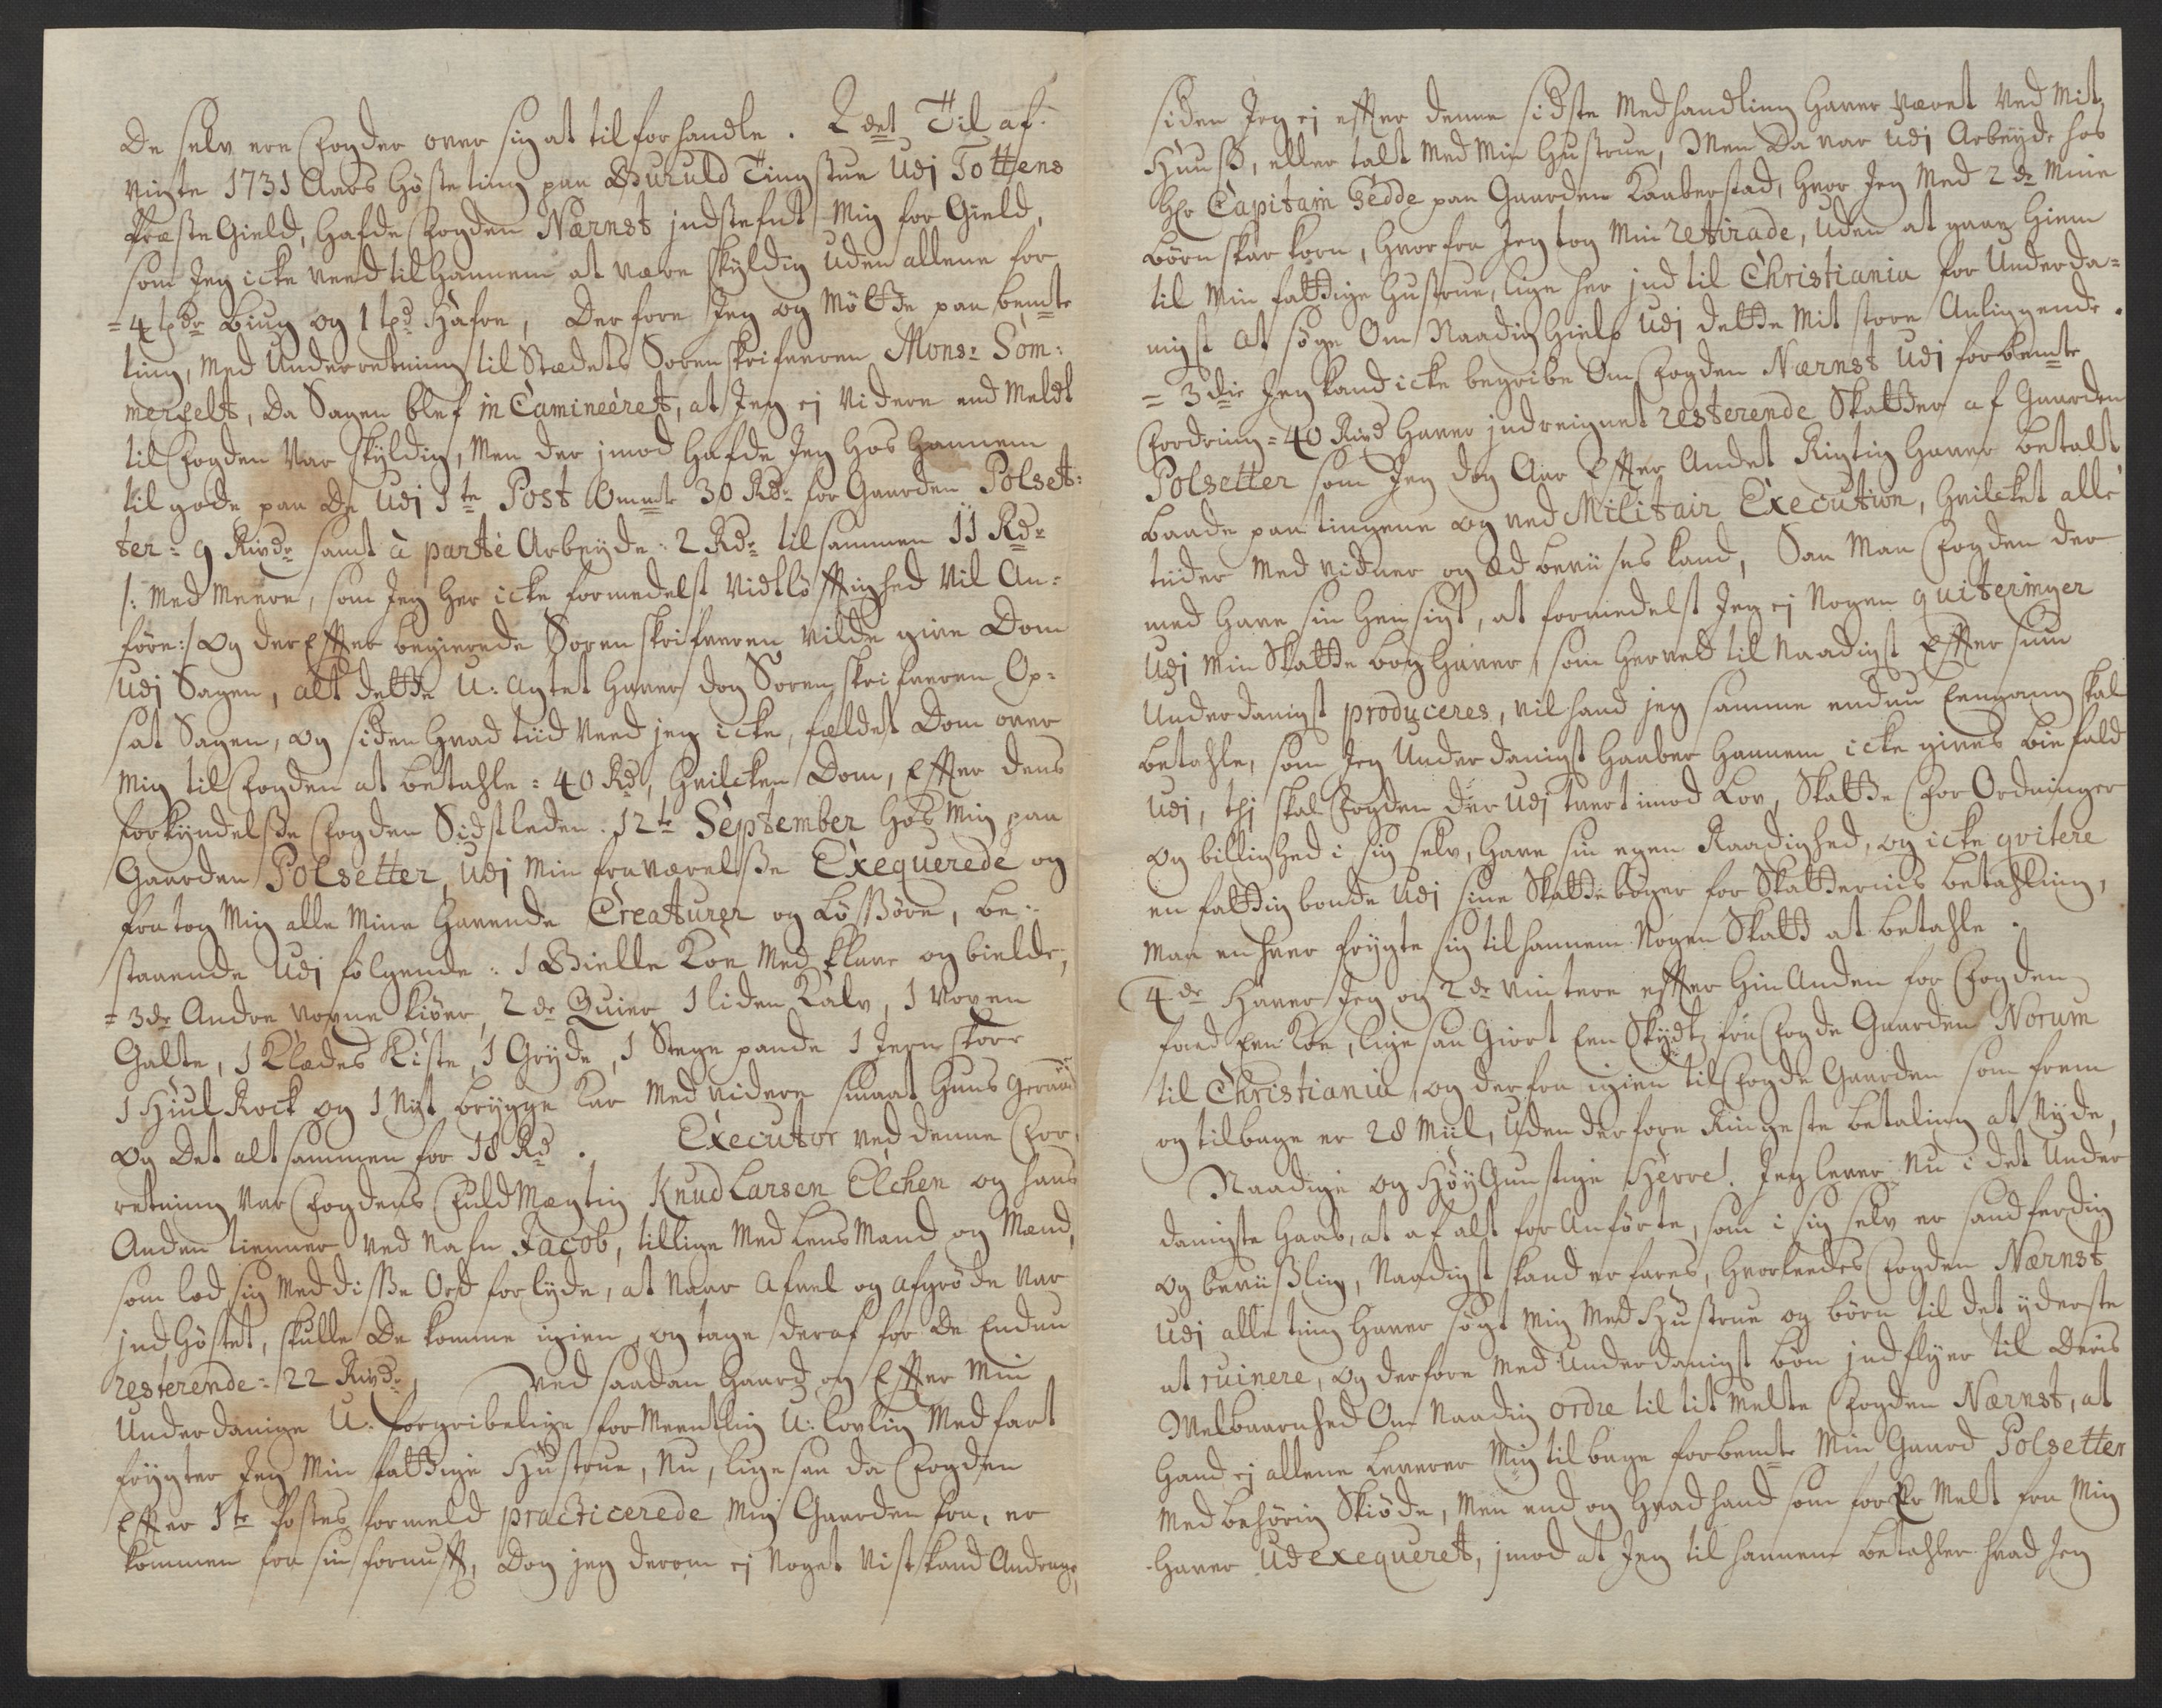 De selv ere Fogder over sig at tilforhandle. 2det Til af:
vigte 1731 Aars Høsteting paa Sururld Tingstue udj Tottens
Præste Gield, hafde Fogden Nærnst indstefnt Mig for Gield,
som Jeg icke veed til hannem at være skyldig uden allene for
= 4 tdr Biug og 1 td Hafre, Derfore Jeg og Møtte paa bemte
ting, med Underretning til Stædets Sorenskrifveren Monsr Som:
merfelt, da Sagen blef in Camineeret, at Jeg ej videre end Meldt
til Fogden var skyldig, Men der imod hafde Jeg hos hannem
til gode paa De udj 1te Post Ommte 30 Rdr for Gaarden Polset:
ter = 9 Rixdr samt à parte Arbeyde: 2 Rdr tilsammen 11 Rdr
/: Med Meere, som Jeg her icke formedelst vidtløfftighed vil An:
føre:/ og der Effter begierede Sorenskrifveren vilde give Dom
udj Sagen, alt dette U:agtet haver dog Sorenskrifveren Op:
sat Sagen, og siden hvad tiid veed jeg icke, fældet Dom over
Mig til Fogden at betahle = 40 Rd, hvilcken Dom, Effter dens
forkyndelsse Fogden Sidstleden 12te September hos Mig paa
Gaarden Polsetter, udj Min fraværelsse Exequerede og
fratog Mig alle Mine havende Creaturer og Løssøre, be:
staaende udj følgende: 1 Bielle Koe Med Klave og bielde,
= 3de Andre voxne kiøer, 2de Qvier 1 liden Kalv, 1 voxen
Galte, 1 Klædes Kiste, 1 Gryde, 1 Stege pande 1 Jern skorr
1 Hiul Rock og 1 Nyt brygge Kar Med videre smaat Huus Geraad
og Det altsammen for 18 Rd. Executor ved denne For:
retning var Fogdens FuldMægtig Knud Larsen Elchen og hans
Anden tienner ved Nafn Jacob, tillige Med LensMand og Mænd,
som lod sig Med disse Ord forlyde, at Naar Afvel og afgrøde var
jndHøstet, skulle De komme igien, og tage deraf for De Endnu
resterende = 22 Rixdr, ved saadan Haard og Effter Min
Underdanige U:forgribelige forMeentlig U:lovlig Medfart
frygter Jeg Min fattige Hustrue, Nu, ligesaa da Fogden
Effter 1te Postes formeld practicerede Mig Gaarden fra, er
kommen fra sin fornufft, Dog jeg derom ej Noget vist kand Andrage,
siden Jeg ej effter denne sidste Medhandling haver været ved Mit
Huuss, eller talt Med Min Hustrue, Men Da var udj Arbeyde hos
Hr Capitain Zedde paa Gaarden Kaaberstad, hvor Jeg Med 2de Mine
Børn skar korn, hvorfra Jeg tog Min retirade, uden at gaae hiem
til Min fattige Hustrue, lige her jnd til Christiania for Underda=
nigst at søge Om Naadig hielp udj dette Mit store Anliggende.
= 3die Jeg kand icke begribe Om Fogden Nærnst udj forbemte
Fordring = 40 Rixd haver jndreignet resterende Skatter af Gaarden
Polsetter som Jeg dog Aar Effter Andet Rigtig haver betalt
baade paa tingene og ved Militair Execution, hvilcket alle
tiider Med vidner og Æd beviises kand, Saa Maa Fogden der
med have sin hensigt, at formedelst Jeg ej Nogen quiteringer
udj Min Skatte bog haver, som herved til Naadigst Effter siun
Underdanigst produceres, vil hand jeg samme endnu Eengang skal
betahle, som Jeg Underdanigst haaber hannem icke gives biefald
udj, thj skal Fogden der udj tvert imod Lov, Skatte ForOrdninger
og billighed i sig selv, have sin egen Raadighed, og icke qvitere
en fattig bonde udj sine Skattebøger for Skatternis betahling,
Maa enhver frygte sig til hannem Nogen Skatt at betahle.
4de Haver Jeg og 2de vintere effter hin Anden for Fogden
foed Een Koe, lige saa Giort Een Skydtz fra Fogde Gaarden Norum
til Christiania, og derfra igien til Fogde Gaarden som frem
og tilbage er 28 Miil, uden derfore Ringeste betaling at Nyde,
Naadige og HøyGunstige Herre! Jeg lever Nu i det Under
danigste Haab, at af alt for Anførte, som i sig selv er sandferdig
og beviisslig, Naadigst skand erfares, hvorleedes Fogden Nærnst
udj alle ting haver søgt Mig Med Hustrue og børn til det yderste
at ruinere, og derfore Med Underdanigst bøn jndflyer til Deris
Velbaarnhed Om Naadig ordre til tit Melte Fogden Nærnst, at
Hand ej allene Leverer Mig tilbage forbemte Min Gaard Polsetter
Med behørig Skiøde, Men end og hvad hand som for er Melt fra Mig
haver Udexequeret, jmod at Jeg til hannem betahler hvad Jeg